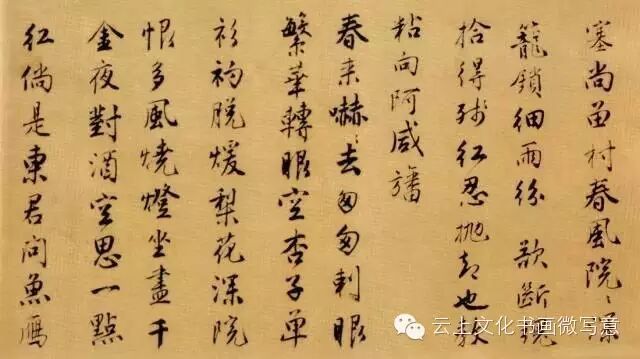 塞尚留村春風院〻深
籠鎖細雨紛欲斷魂
拾得殘紅忍抛却也教
粘向阿咸旛
春来嚇〻去匆匆刺眼
繁華轉眼空杏子單
衫初脫煖梨花深院
恨多風燒燈坐盡千
金夜對酒空思一點
紅倘是東君問魚雁
云上文化书画微写意